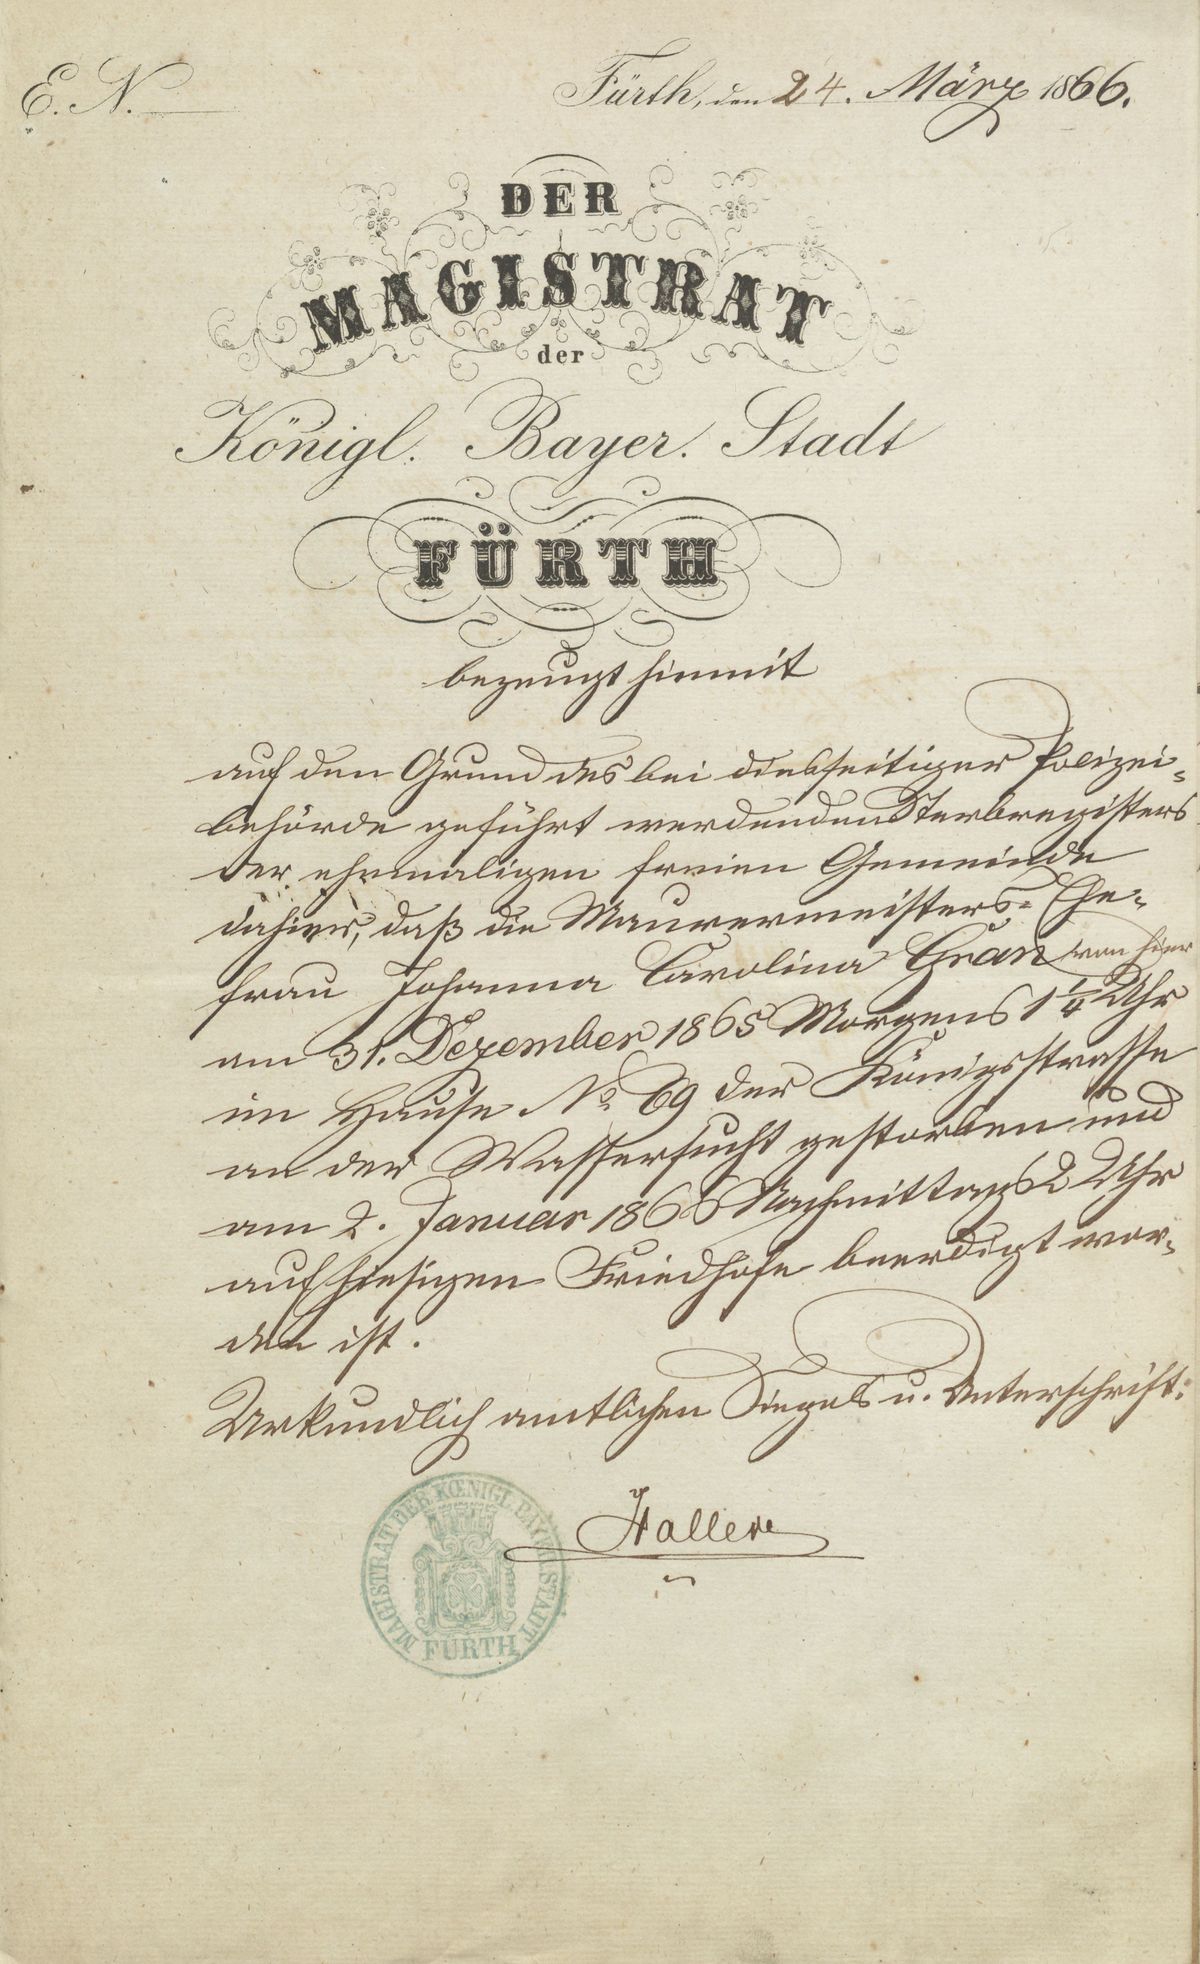 E. N.
Fürth, den 24. März 1866.
DER
MAGISTRAT
der
Königl. Bayer. Stadt
FÜRTH
bezeugt hiermit
auf den Grund des bei diesseitiger Polizei-
behörde geführt werdenden Sterbregisters
der ehemaligen freien Gemeinde
dahier, daß die Maurermeisters-Ehe-
frau Johanna Carolina Gran von hier
am 31. Dezember 1865 Morgens 1 1/4 Uhr
im Hause No. 69 der Königsstrasse
an der Wassersucht gestorben und
am 2. Januar 1866 Nachmittags 2 Uhr
auf hiesigen Friedhofe beerdigt wor-
den ist.
Urkundlich amtlichen Siegels u. Unterschrift.
Haller
MAGISTRAT DER KŒNIGL BAYER STADT
FÜRTH